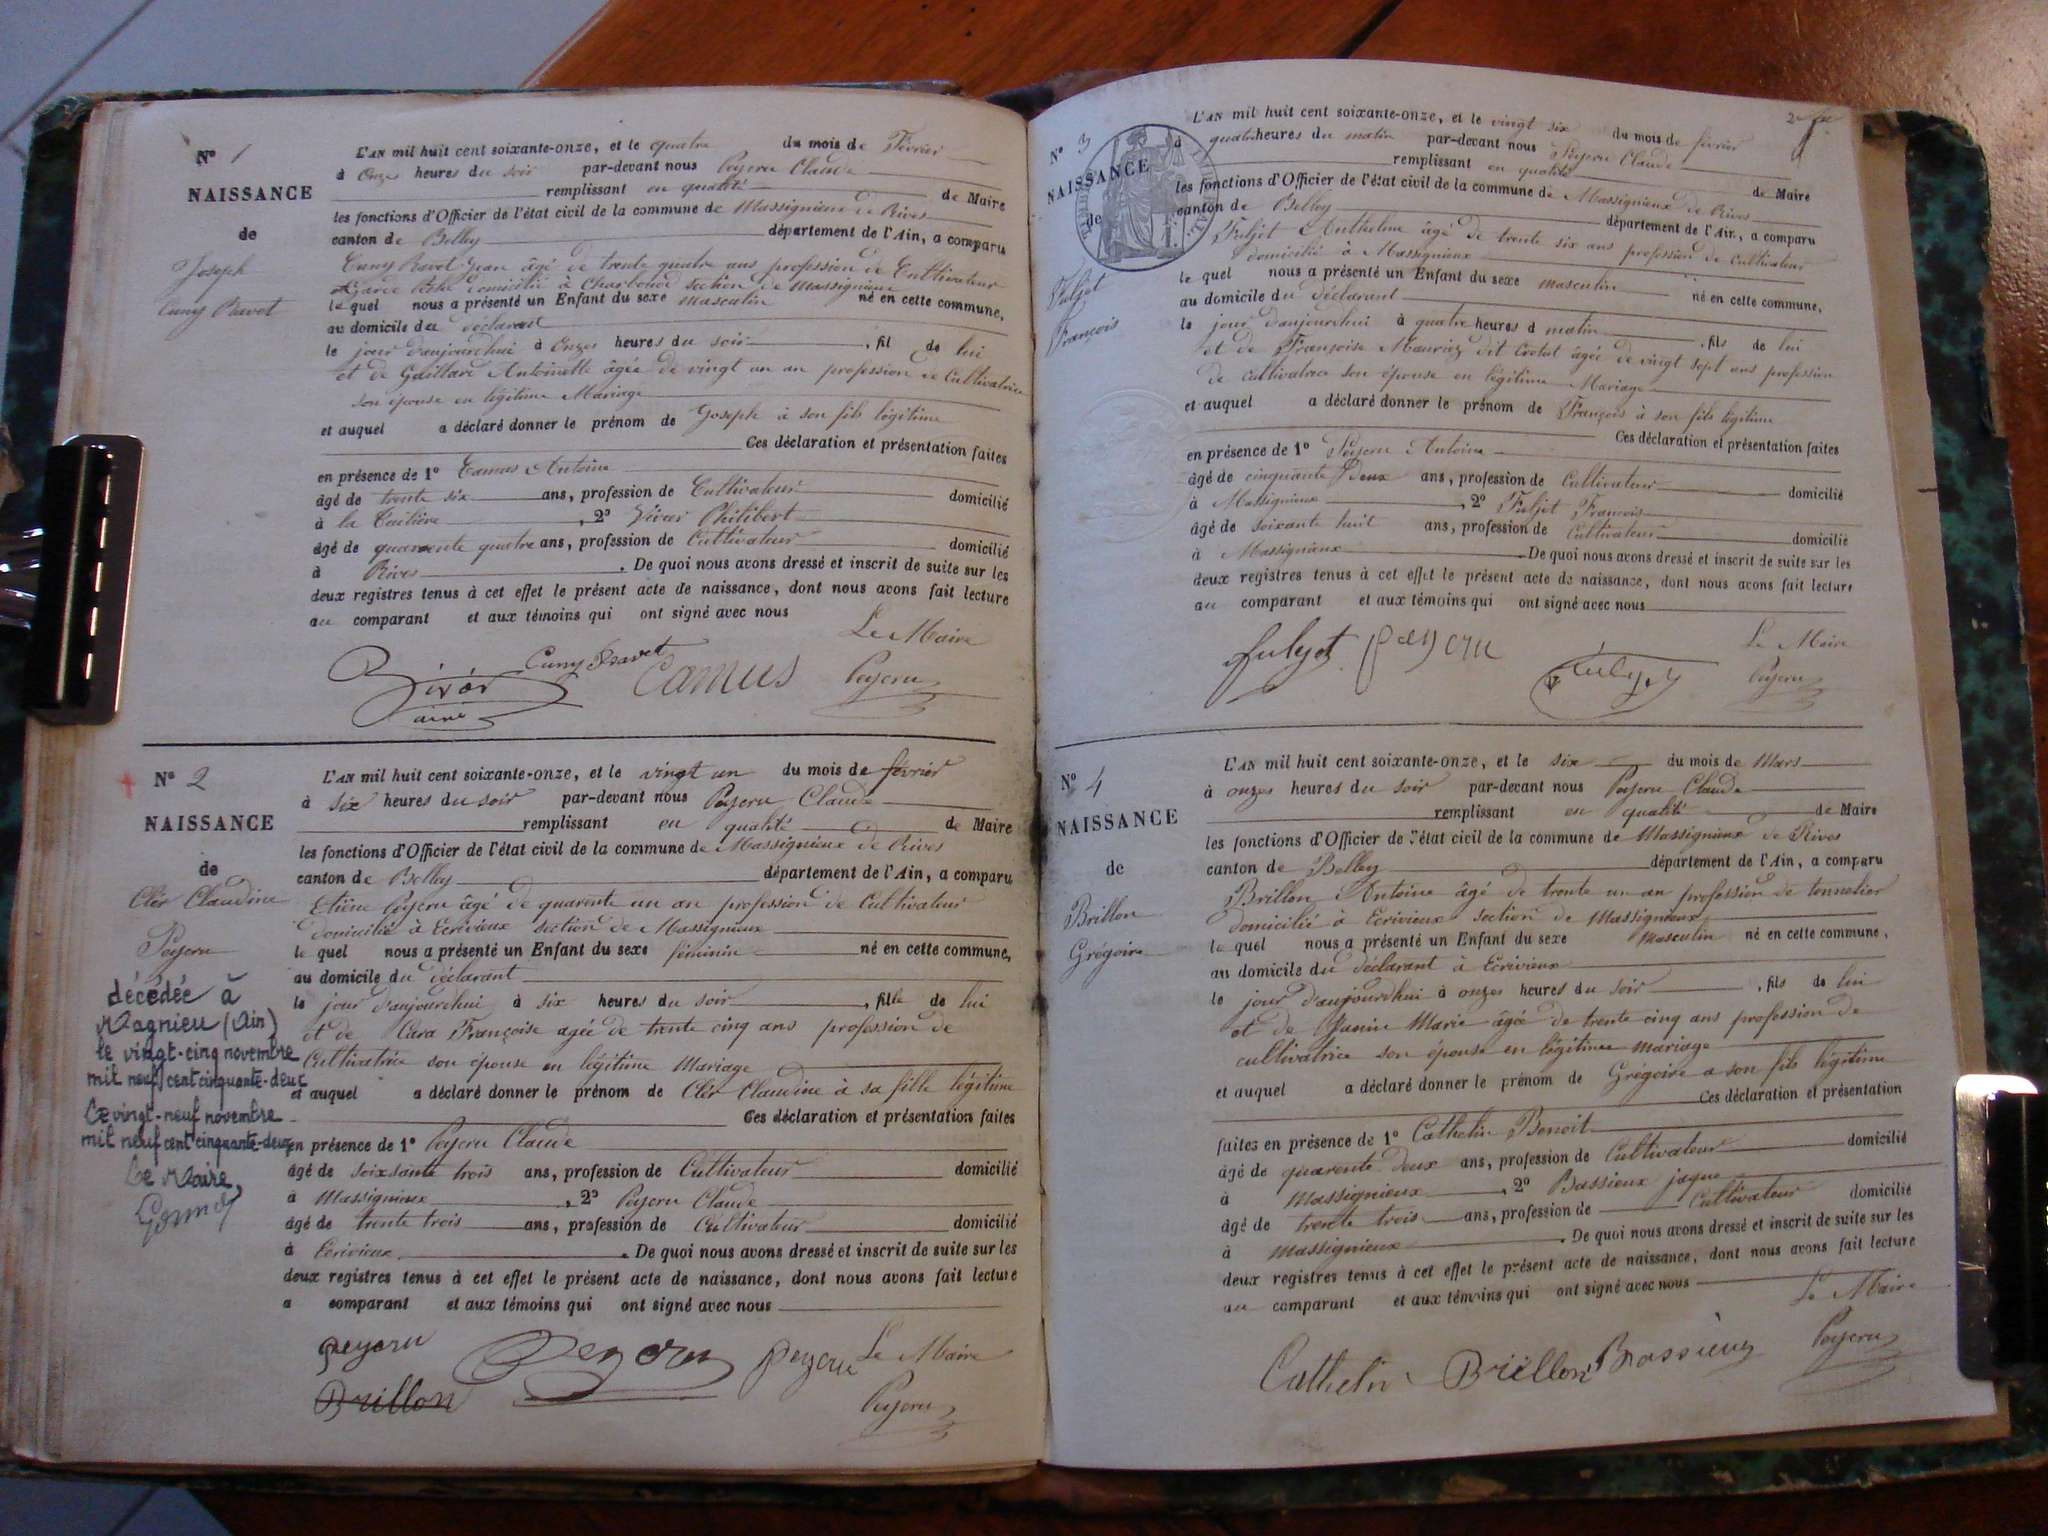 N° 1
NAISSANCE
de
Joseph
Cuny Ravet
L'AN mil huit cent soixante-onze, et le quatre du mois de Février
à Onze heures du soir par-devant nous Peyeru Claude
remplissant en qualité de Maire
les fonctions d'Officier de l'état civil de la commune de Massignieux de Rives
canton de Belley département de l'Ain, a comparu
Cuny Ravet Jean âgé de trente quatre ans profession de Cultivateur
domicilié à Charbonod section de Massignieux
le quel nous a présenté un Enfant du sexe masculin né en cette commune,
au domicile du déclarant
le jour d'aujourdhui à Onze heures du soir , fil de lui
et de Gaillard Antoinette âgée de vingt un an profession de Cultivatrice
son épouse en légitime Mariage
et auquel a déclaré donner le prénom de Joseph à son fils légitime
Ces déclaration et présentation faites
en présence de 1° Camus Antoine
âgé de trente six ans, profession de Cultivateur domicilié
à la , 2° Philibert
âgé de quarente quatre ans, profession de Cultivateur domicilié
à Rives . De quoi nous avons dressé et inscrit de suite sur les
deux registres tenus à cet effet le présent acte de naissance, dont nous avons fait lecture
au comparant et aux témoins qui ont signé avec nous
Le Maire
Cuny Ravet Camus Peyeru
ainé
N° 2
NAISSANCE
de
Cler Claudine
Peyeru
décédée à
Magnieu (Ain)
le vingt-cinq novembre
mil neuf cent cinquante-deux
Le vingt-neuf novembre
mil neuf cent cinquante-deux
Le Maire,
L'AN mil huit cent soixante-onze, et le vingt un du mois de février
à six heures du soir par-devant nous Peyeru Claude
remplissant en qualité de Maire
les fonctions d'Officier de l'état civil de la commune de Massignieux de Rives
canton de Belley département de l'Ain, a comparu
Etiène Peyeru âgé de quarente un an profession de Cultivateur
domicilié à Ecrivieux section de Massignieux
le quel nous a présenté un Enfant du sexe féminin né en cette commune,
au domicile du déclarant
le jour d'aujourdhui à six heures du soir , fille de lui
et de Cara Françoise agée de trente cinq ans profession de
Cultivatrice son épouse en légitime Mariage
et auquel a déclaré donner le prénom de Cler Claudine à sa fille légitime
Ces déclaration et présentation faites
en présence de 1° Peyeru Claude
âgé de soixsante trois ans, profession de Cultivateur domicilié
à Massignieux , 2° Peyeru Claude
âgé de trente trois ans, profession de Cultivateur domicilié
à Ecrivieux . De quoi nous avons dressé et inscrit de suite sur les
deux registres tenus à cet effet le présent acte de naissance, dont nous avons fait lecture
a comparant et aux témoins qui ont signé avec nous
peyeru Peyeru peyeru Le Maire
Brillon Peyeru
N° 3
NAISSANCE
de
Fuljet
François
L'AN mil huit cent soixante-onze, et le vingt six du mois de février
à quatre heures du matin par-devant nous Peyeru Claude
remplissant en qualité de Maire
les fonctions d'Officier de l'état civil de la commune de Massignieux de Rives
canton de Belley département de l'Ain, a comparu
Fuljet Anthelme âgé de trente six ans profession de cultivateur
domicilié à Massignieux
le quel nous a présenté un Enfant du sexe masculin né en cette commune,
au domicile du déclarant
le jour d'aujourdhui à quatre heures d matin , fils de lui
et de Françoise dit âgée de vingt sept ans profession
de cultivatrice son épouse en légitime Mariage
et auquel a déclaré donner le prénom de François à son fils légitime
Ces déclaration et présentation faites
en présence de 1° Peyeru Antoine
âgé de cinquante deux ans, profession de Cultivateur domicilié
à Massignieux , 2° Fuljet François
âgé de soixante huit ans, profession de Cultivateur domicilié
à Massignieux . De quoi nous avons dressé et inscrit de suite sur les
deux registres tenus à cet effet le présent acte de naissance, dont nous avons fait lecture
au comparant et aux témoins qui ont signé avec nous
Le Maire
Peyeru
N° 4
NAISSANCE
de
Brillon
Grégoire
L'AN mil huit cent soixante-onze, et le six du mois de Mars
à onze heures du soir par-devant nous Peyeru Claude
remplissant en qualité de Maire
les fonctions d'Officier de l'état civil de la commune de Massignieux de Rives
canton de Belley département de l'Ain, a comparu
Brillon Antoine âgé de trente un an profession de tonnelier
domicilié à Ecrivieux section de Massignieux
le quel nous a présenté un Enfant du sexe masculin né en cette commune,
au domicile du déclarant à Ecrivieux
le jour d'aujourdhui à onze heures du soir , fils de lui
et de Janin Marie âgée de trente cinq ans profession de
cultivatrice son épouse en légitime mariage
et auquel a déclaré donner le prénom de Grégoire a son fils légitime
Ces déclaration et présentation
faites en présence de 1° Cathelin Benoit
âgé de quarente deux ans, profession de Cultivateur domicilié
à Massignieux , 2° Bassieux jaque
âgé de trente trois ans, profession de Cultivateur domicilié
à Massignieux . De quoi nous avons dressé et inscrit de suite sur les
deux registres tenus à cet effet le présent acte de naissance, dont nous avons fait lecture
au comparant et aux témoins qui ont signé avec nous
Le Maire
Cathelin Brillon Peyeru